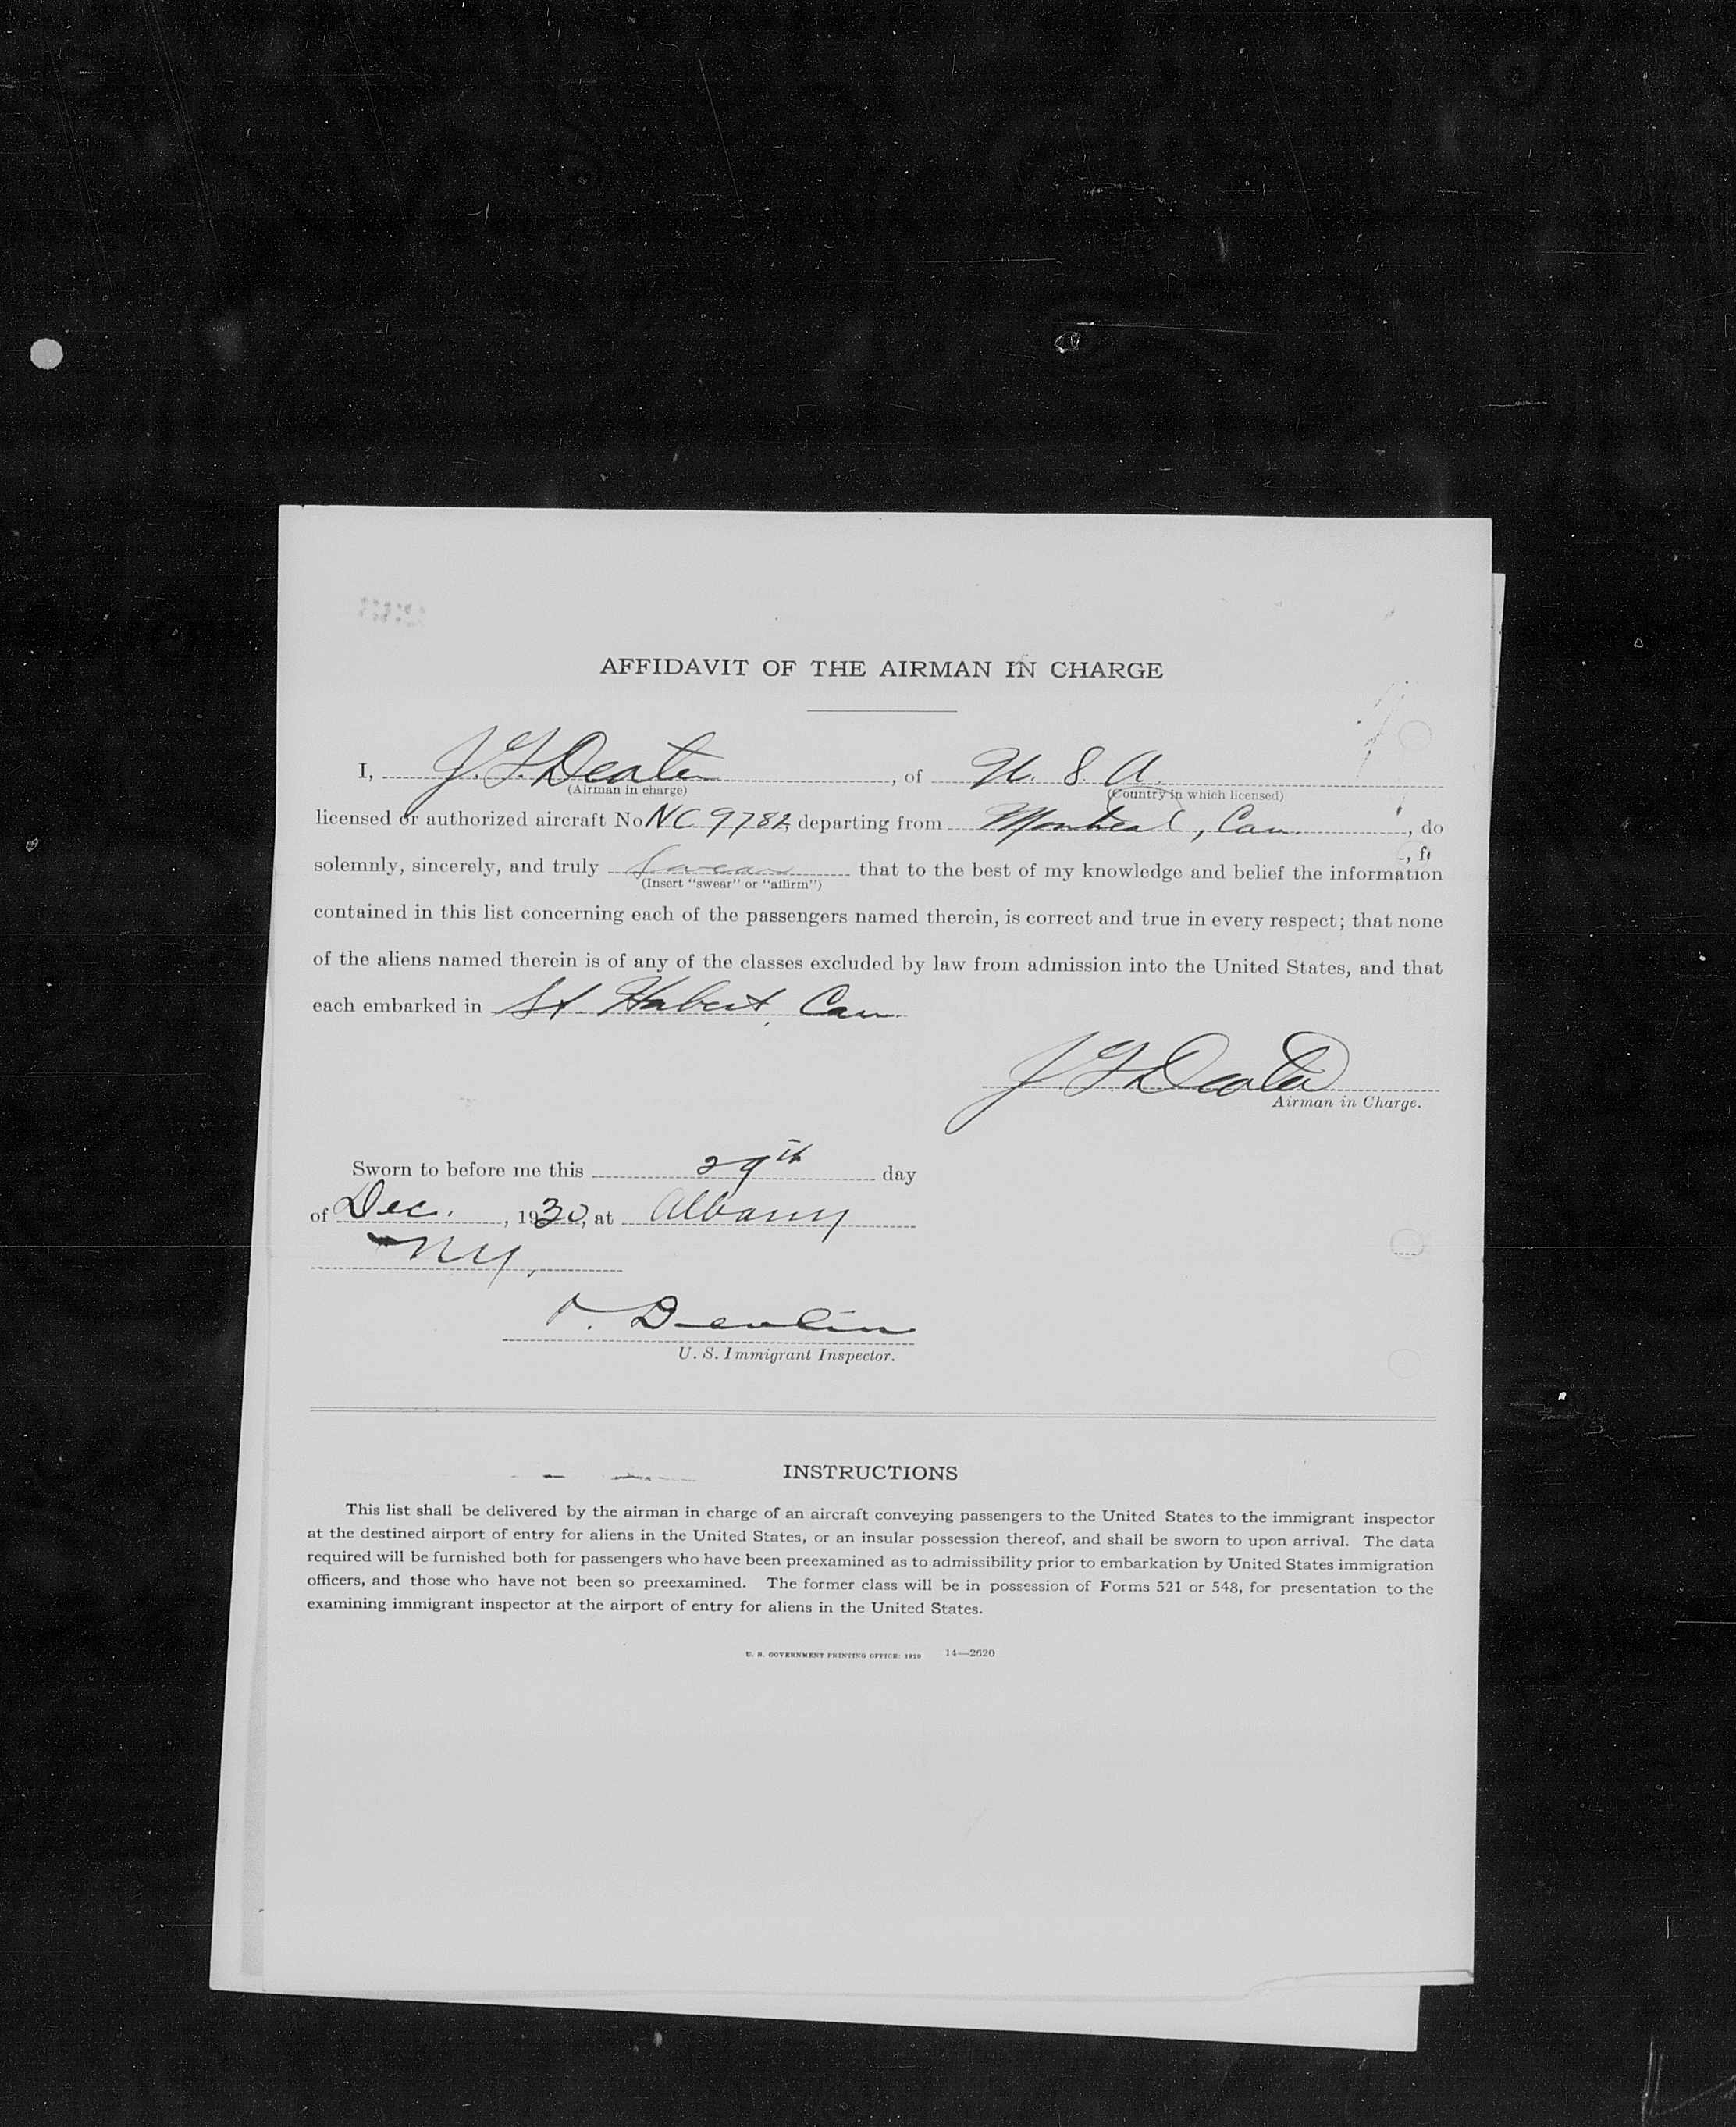 AFFIDAVIT OF THE AIRMAN IN CHARGE
I, J. G. Deater, of U. S. A.
(Airman in charge) (Country in which licensed)
licensed or authorized aircraft No NC 9782, departing from Montreal, Can., do
solemnly, sincerely, and truly swear that to the best of my knowledge and belief the information
(Insert "swear" or "affirm")
contained in this list concerning each of the passengers named therein, is correct and true in every respect; that none
of the aliens named therein is of any of the classes excluded by law from admission into the United States, and that
each embarked in St. Hubert, Can.
J G Deater
Airman in Charge.
Sworn to before me this 29th day
of Dec., 1930, at Albany
NY.
Devlin
U. S. Immigrant Inspector.
INSTRUCTIONS
This list shall be delivered by the airman in charge of an aircraft conveying passengers to the United States to the immigrant inspector
at the destined airport of entry for aliens in the United States, or an insular possession thereof, and shall be sworn to upon arrival. The data
required will be furnished both for passengers who have been preexamined as to admissibility prior to embarkation by United States immigration
officers, and those who have not been so preexamined. The former class will be in possession of Forms 521 or 548, for presentation to the
examining immigrant inspector at the airport of entry for aliens in the United States.
U. S. GOVERNMENT PRINTING OFFICE: 1929 14—2620